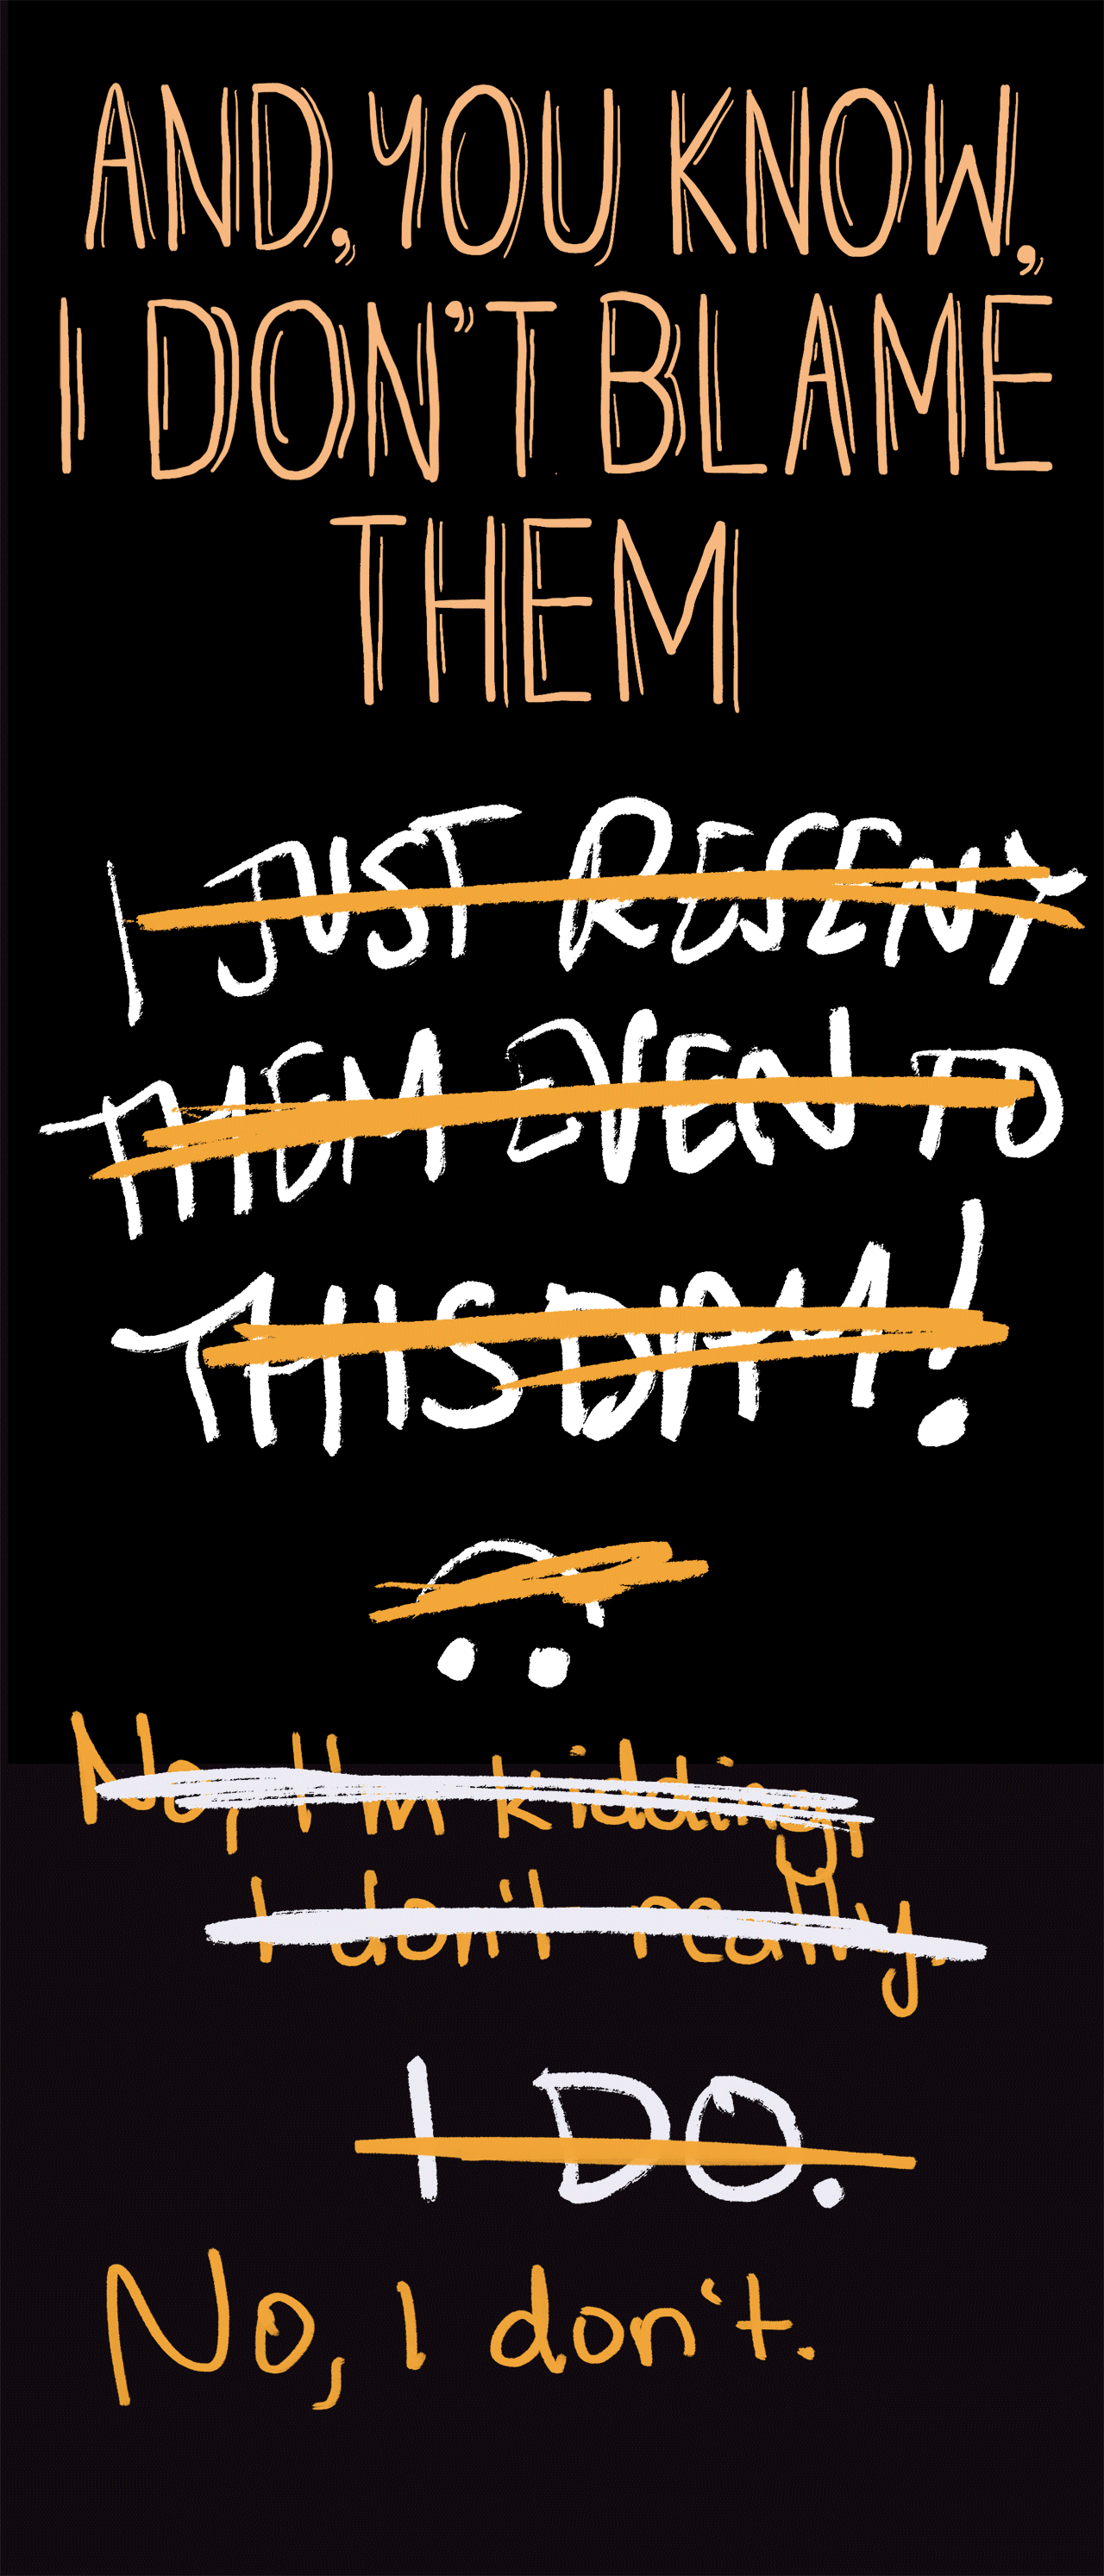 AND, YOU KNOW,
I DON'T BLAME
THEM
I JUST RESENT
THEM EVEN TO
THIS DAY!
No, I'm kidding,
I don't really.
I DO.
No, I don't.